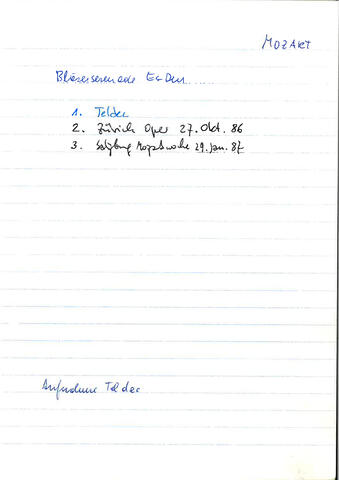 MOZART
Bläserserenade Es Dur.....
1. Teldec
2. Zürich Oper 27. Okt. 86
3. Salzburg Mozartwoche 29. Jan. 87
Aufnahme Teldec